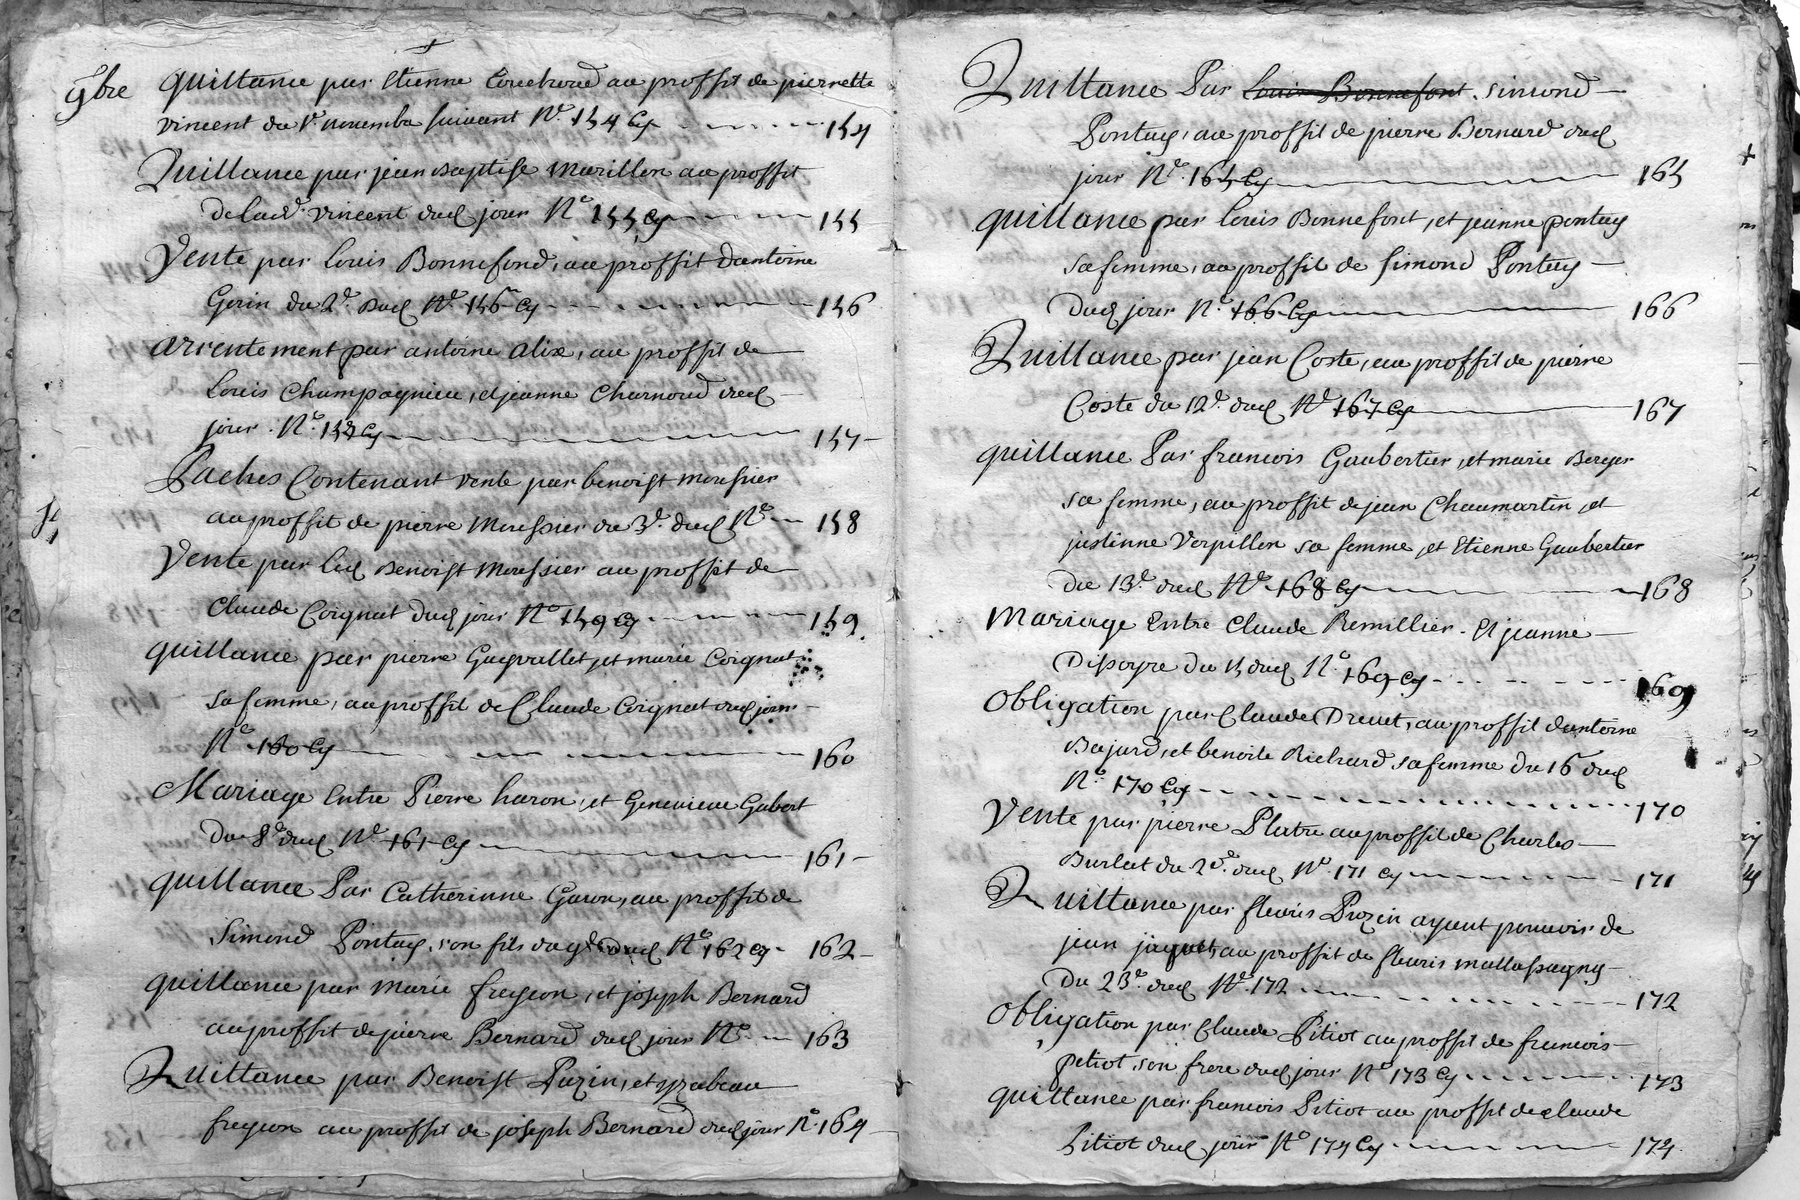 9bre quittance par Etienne Couchoud au proffit de pierrette
vincent du 1r. novembre suivant No. 154 Cy 154
Quittance par jean Baptiste Marillon au proffit
de lad. vincent dud jour No 155 Cy 155
Vente par louis Bonnefond, au proffit dantoine
Gerin du 2e. Dud No. 156 Cy 156
arrentement par antoine alix, au proffit de
louis Champagnieu, et jeanne Charnoud dud
jour. No. 157 Cy 157
Paches Contenant vente par benoist moussier
au proffit de pierre Moussier du 3e. dud No. 158
Vente par led Benoist Moussier au proffit de
Claude Coignat dud jour No 159 Cy 159.
quittance par pierre et marie Coignat
sa femme, au proffit de Claude Coignat dud jour
No 160 Cy 160
Mariage Entre Pierre haron, et Genevieve Gabert
Du 8e dud No 161 Cy 161
quittance Par Catherinne Garon, au proffit de
Simond Pontus, son fils du 9e Dud No 162 Cy 162
quittance par marie freycon, et joseph Bernard
au proffit de pierre Bernard dud jour No. 163
Quittance par Benoist Puzin, et yzabeau
freycon au proffit de joseph Bernard dud jour No. 164
Quittance Par louis Bonnefont. simond
Pontus, au proffit de pierre Bernard dud
jour No. 165 Cy 165
quittance par louis Bonnefont, et jeanne pontus
sa femme, au proffit de simond Pontus
Dud jour No. 166 Cy 166
Quittance par jean Coste, au proffit de pierre
Coste du 12e. dud No 167 Cy 167
quittance Par francois Gaubertier, et marie Berger
sa femme, au proffit de jean Chaumartin, et
justinne Verpillon sa femme, et Etienne Gaubertier
du 13e. dud No 168 Cy 168
Mariage Entre Claude Remillier. Et jeanne
du 15 dud No. 169 Cy 169
Obligation par Claude Drevet, au proffit dantoine
Bajard, et benoite Richard sa femme du 16 dud
No. 170 Cy 170
Vente par pierre Platre au proffit de Charles
Burlat du 2e. dud No 171 Cy 171
Quittance par fleuris Puzin ayant pouvoir de
jean jaquet, au proffit de fleuris
Du 23e. dud No. 172 172
Obligation par Claude Pitiot au proffit de francois
petiot son frere dud jour No 173 Cy 173
quittance par francois Pitiot au proffit de claude
Pitiot dud jour No 174 Cy 174.